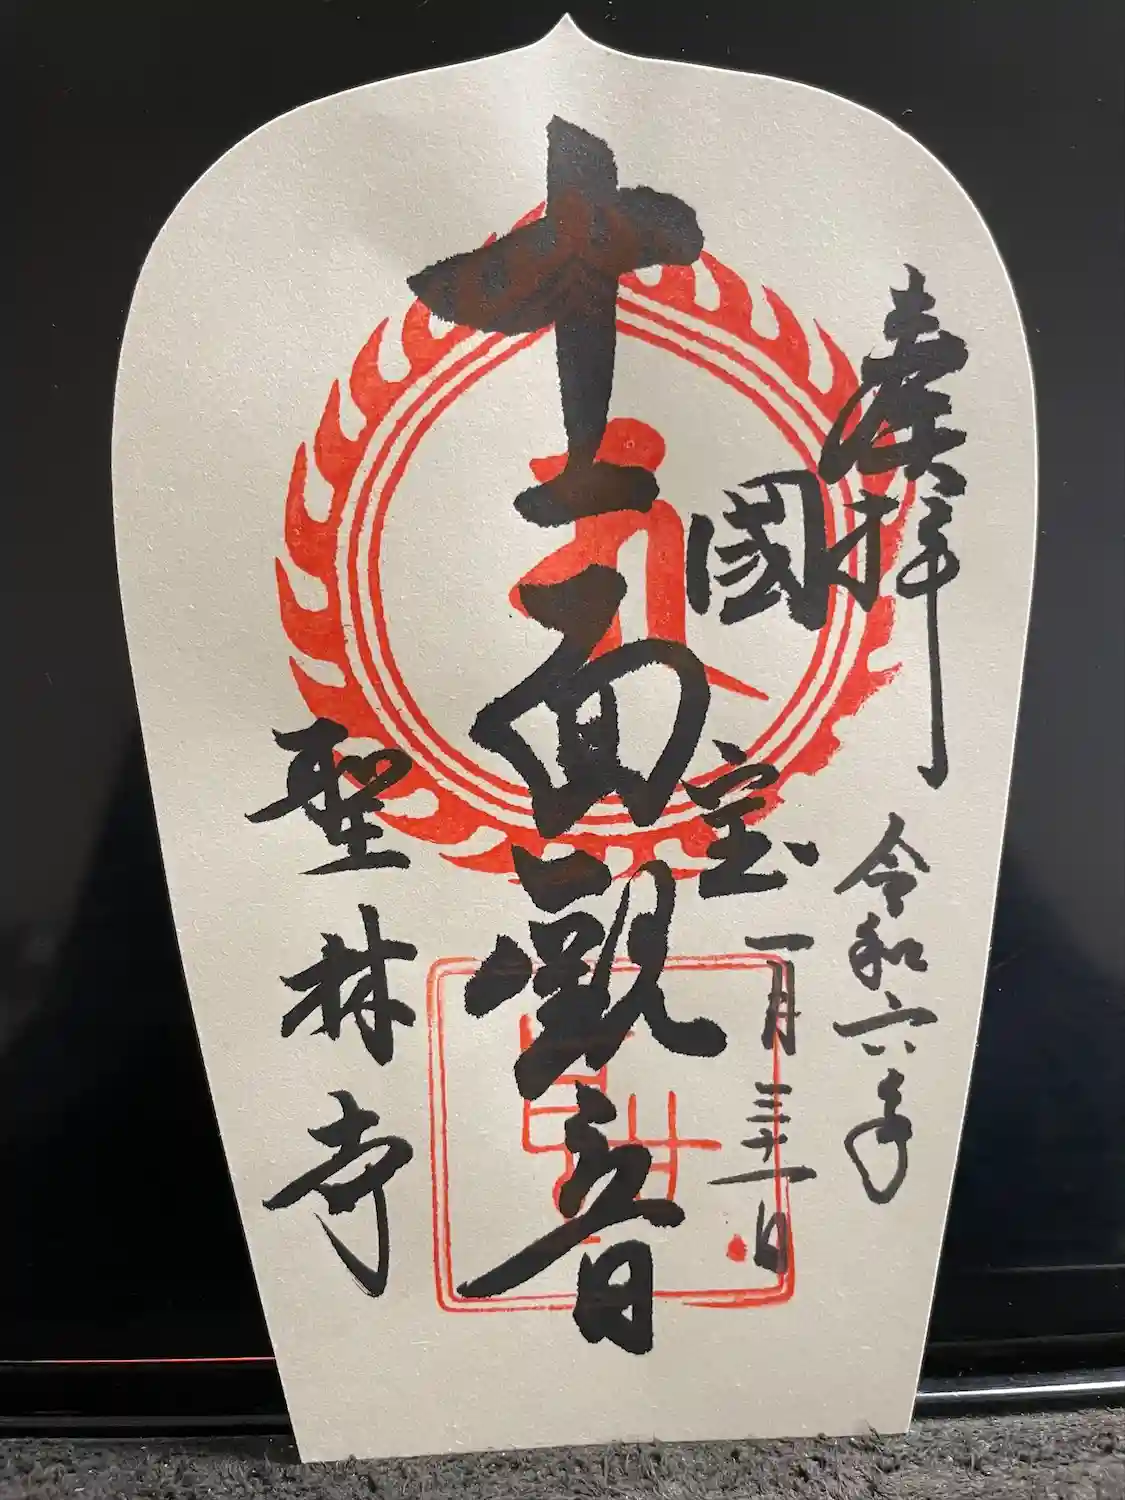 奉拝
令和六年
一月三十一日
國宝
十一面觀音
聖林寺